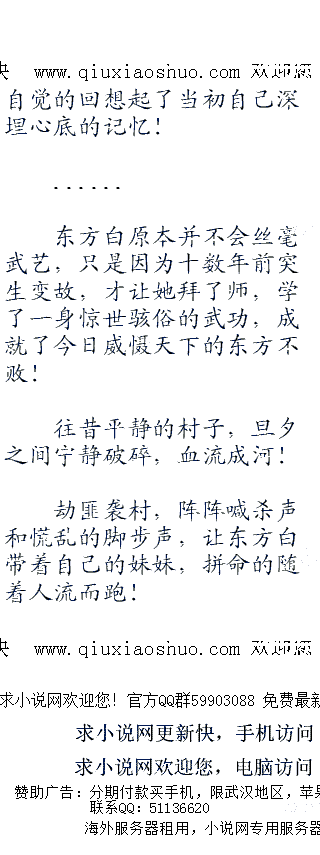 快 www.qiuxiaoshuo.com 欢迎您
自觉的回想起了当初自己深
埋心底的记忆!
......
东方白原本并不会丝毫
武艺，只是因为十数年前突
生变故，才让她拜了师，学
了一身惊世骇俗的武功，成
就了今日威慑天下的东方不
败!
往昔平静的村子，旦夕
之间宁静破碎，血流成河!
劫匪袭村，阵阵喊杀声
和慌乱的脚步声，让东方白
带着自己的妹妹，拼命的随
着人流而跑!
快 www.qiuxiaoshuo.com 欢迎您
求小说网欢迎您! 官方QQ群59903088 免费最新
求小说网更新快，手机访问
求小说网欢迎您，电脑访问
赞助广告：分期付款买手机，限武汉地区，苹果
联系QQ：51136620
海外服务器租用，小说网专用服务器